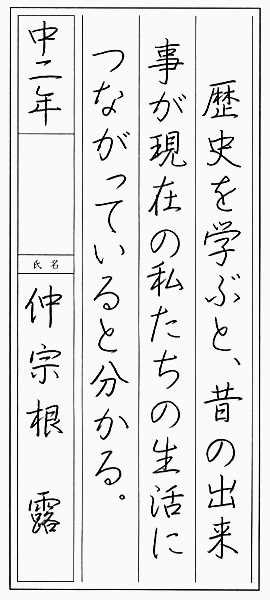 歴史を学ぶと、昔の出来
事が現在の私たちの生活に
つながっていると分かる。
中二年
氏名
仲宗根 露